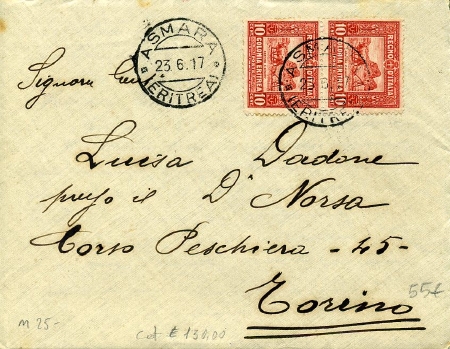 ASMARA
23.6.17
(ERITREA)
REGNO D'ITALIA
COLONIA ERITREA
10 10
REGNO D'ITALIA
COLONIA ERITREA
10 10
ASMARA
(ERITREA)
Signora
Luisa Dadone
presso il D' Norsa
Corso Peschiera - 45 -
Torino
55£
M 25-
cat € 130,00